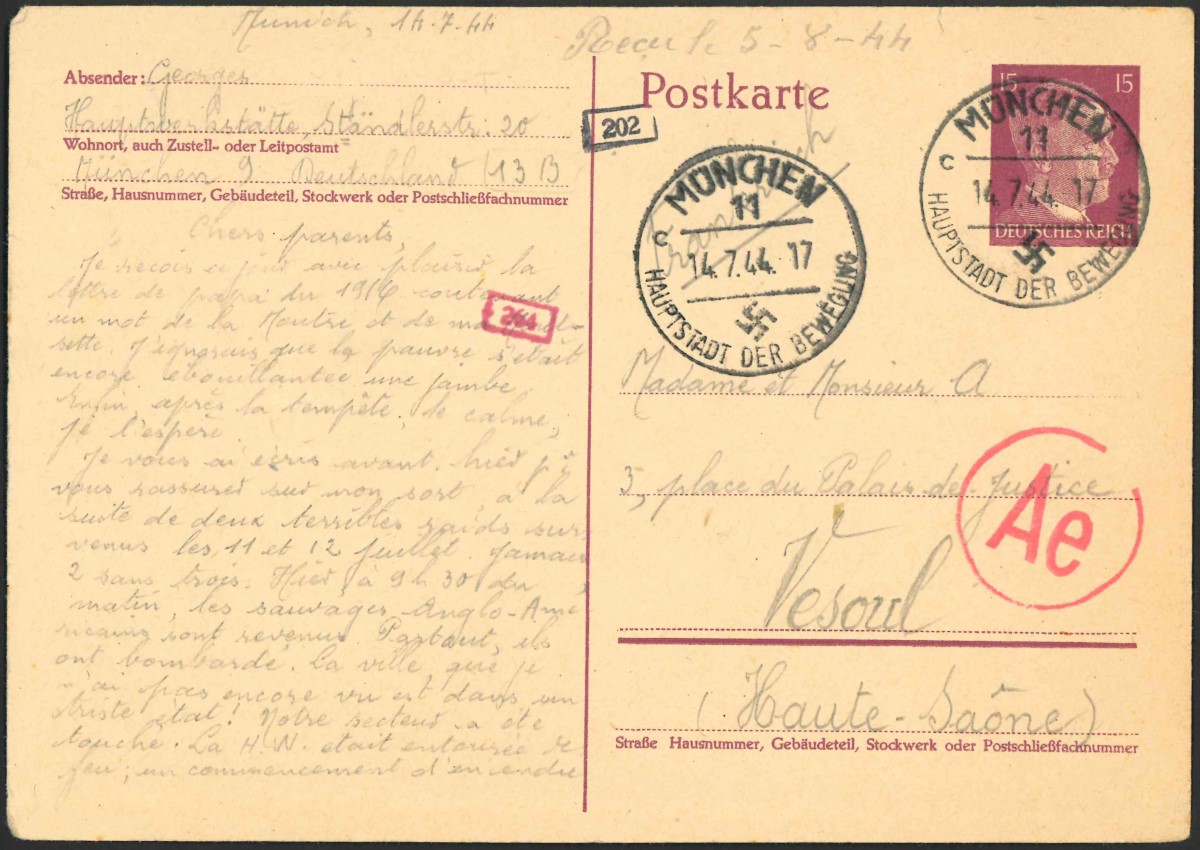 Munich, 14-7-44
Reçu le 5-8-44
Absender: Georges
Hauptwerkstätte, Ständlerstr. 20
Wohnort, auch Zustell- oder Leitpostamt
München 9 Deutschland (13 B
Straße, Hausnummer, Gebäudeteil, Stockwerk oder Postschließfachnummer
Chers parents,
Je reçois ce jour avec plaisir la
lettre de papa du 19/6 contenant
un mot de la Moutre et de ma
sette. J'ignorais que la pauvre s'était
encore ébouillantée une jambe.
Enfin, après la tempête, le calme,
je l'espère.
Je vous ai écris avant-hier pr
vous rassurer sur mon sort à la
suite de deux terribles raids sur-
venus les 11 et 12 juillet. Jamais
2 sans trois. Hier à 9 h 30 du
matin, les sauvages Anglo-Amé
ricains sont revenus. Partout, ils
ont bombardé. La ville que je
n'ai pas encore vu est dans un
triste état! Notre secteur a été
touché. La H.W. était entourée de
feu; un commencement d'incendie
264
202
Postkarte
Frankreich
15 15
DEUTSCHES REICH
MÜNCHEN
11
c
14.7.44. 17
HAUPTSTADT DER BEWEGUNG
MÜNCHEN
11
c
14.7.44. 17
HAUPTSTADT DER BEWEGUNG
Madame et Monsieur A
3, place du Palais de Justice
Ae
Vesoul
(Haute-Saône)
Straße Hausnummer, Gebäudeteil, Stockwerk oder Postschließfachnummer